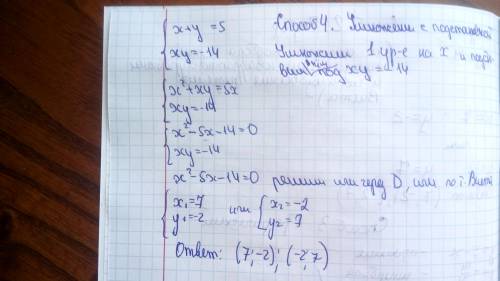 x+y=5 Способ 4. Умножение с подстановкой
xy=-14 Умножим 1 ур-е на x и подста-
вим под xy = -14
x²+xy=5x
xy=-14
x²-5x-14=0
xy=-14
x²-5x-14=0 решим или через D, или по т. Виета
x₁=7 или x₂=-2
y₁=-2 y₂=7
Ответ: (7;-2); (-2;7)